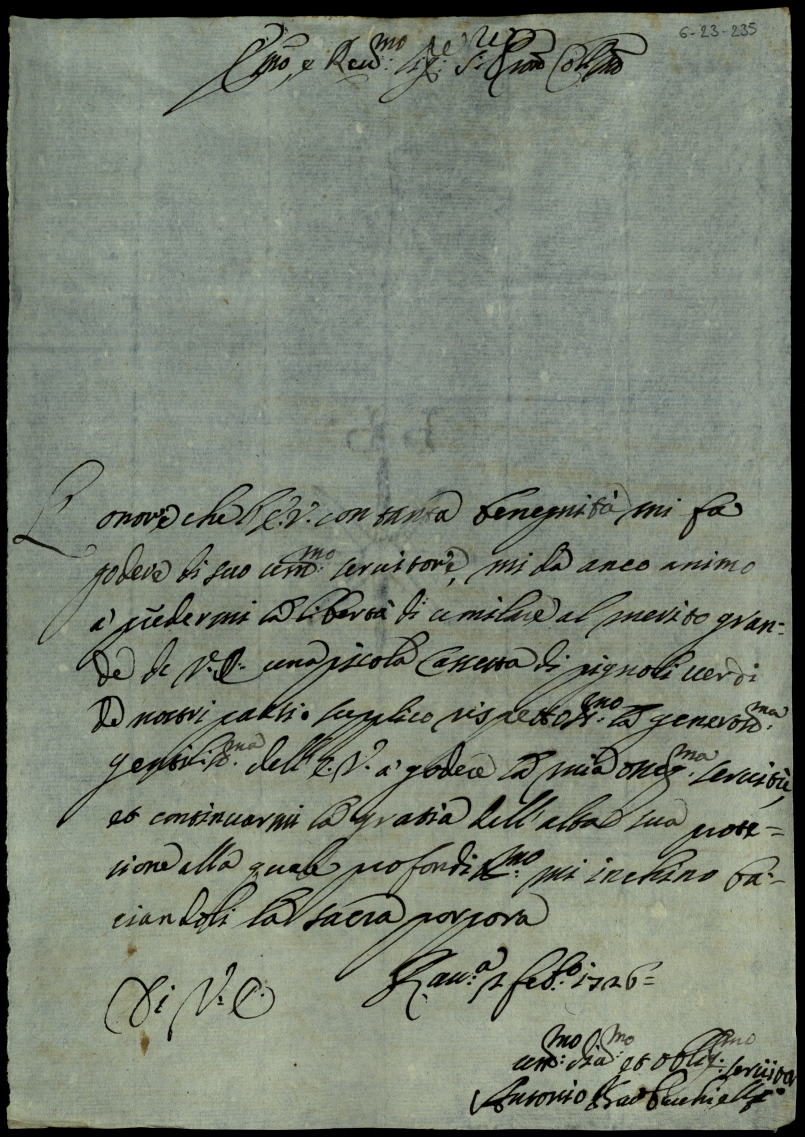 6-23-235
Emo, e Reud:mo Sig:re S:re Pron Col:mo
L'onore che l'E: V: con tanta benegnità mi fa
godere di suo um:mo seruitore, mi dà anco animo
a' prēdermi la libertà di umiliare al merito gran=
de de V: E: una picola Cassetta di pignoli uerdi
de nostri parti. suplico rispettos:mo la generos:ma
gentiliss:ma dell'E: V: a' godere la mia osseq:ma seruitù,
et continuarmi la gratia dell'alta sua prote=
cione alla quale profondiss:mo mi inchino ba=
ciandoli la sacra porpora
Di V: E:
Rau:a 2 feb:o 1726=
um:mo diu:mo et oblig:mo seruitor
Antonio